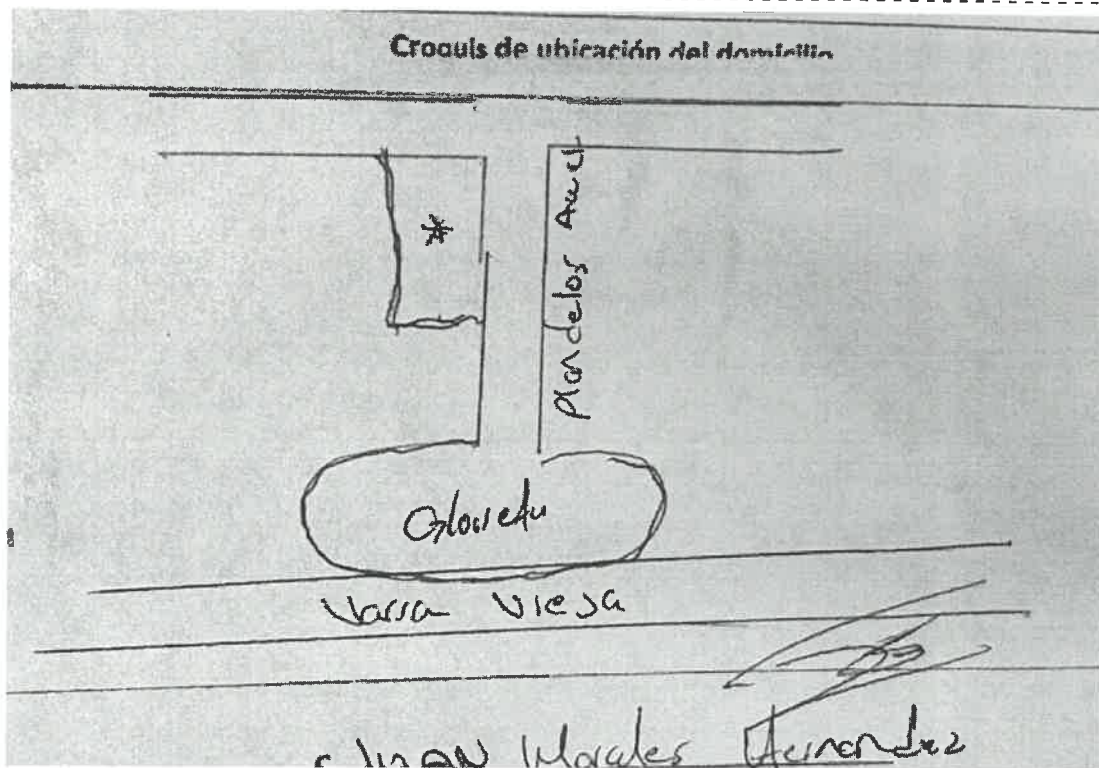 Croquis de ubicación del domicilio
*
Plan de los
Glorieta
Varra Vieja
Morales Hernandez